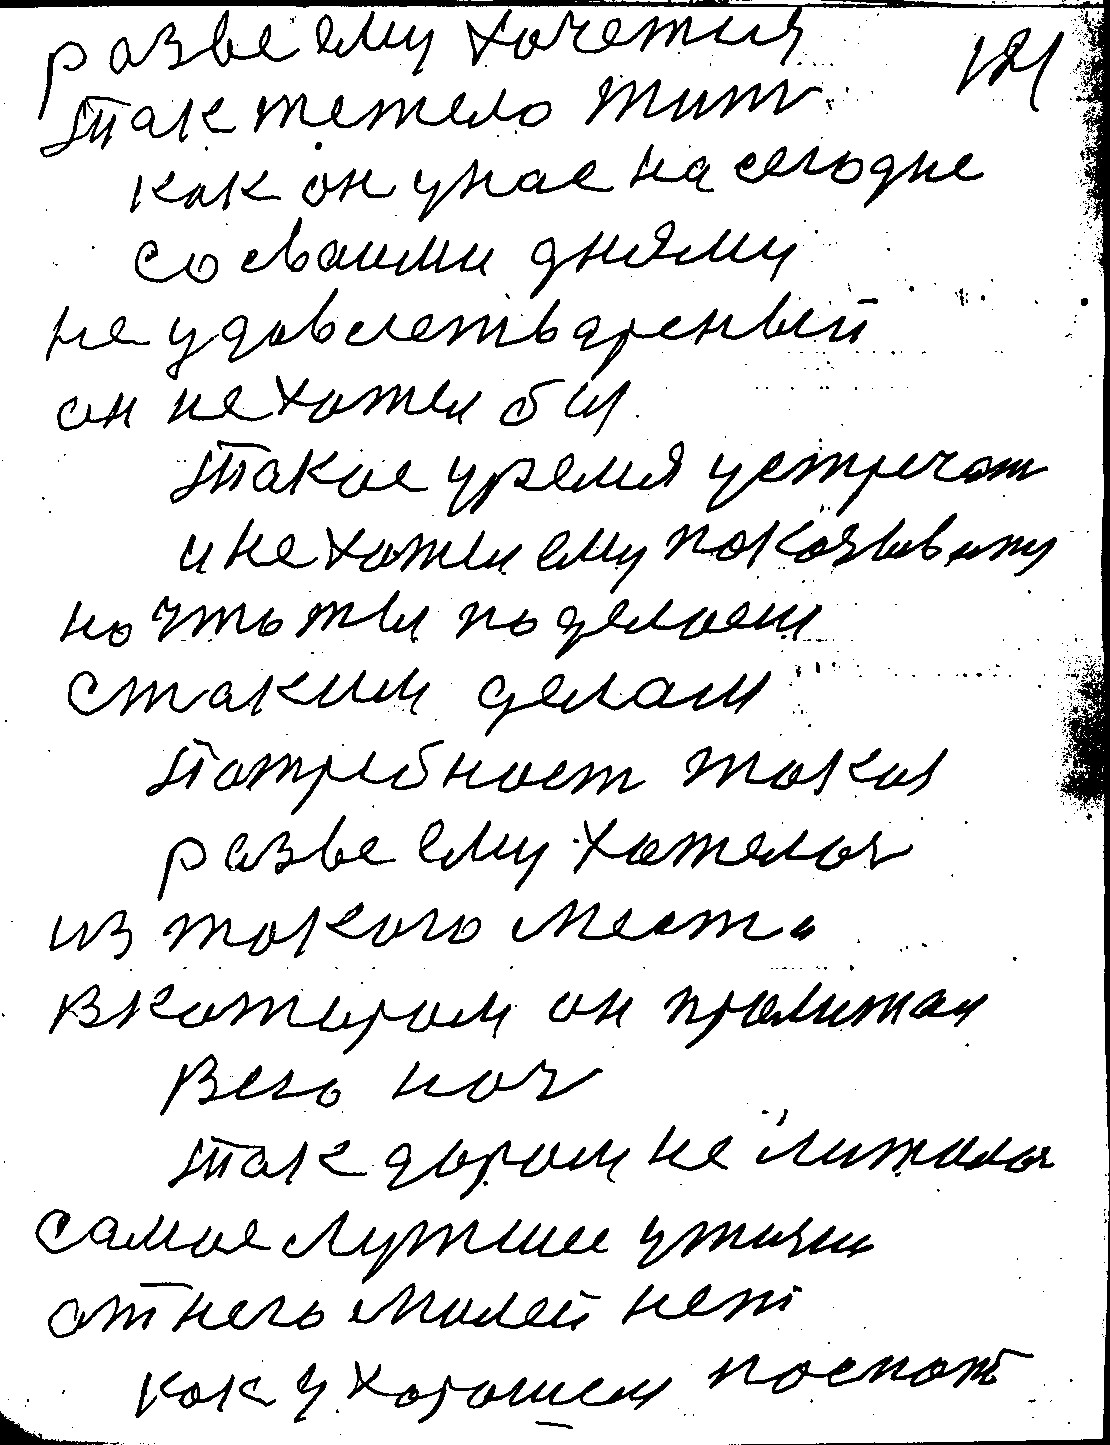 разве ему хочетися 121
так тежело жить
как он у нас на сегодне
со сваими днями
не удовлетвареный
он не хотел бы
такое уремя устречат
и не хотел ему показыват
но что ты поделаеш
с таким делам
потребност такая
разве ему хателос
из такого места
в катором он пролижал
всю ноч
так даром не лижалос
самое лутшие у жизни
от него милей нет
как у хорошем поспат